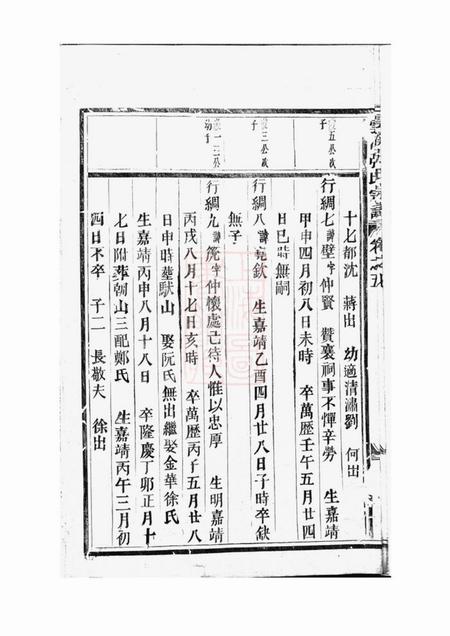 十七都沈 蔣出 幼適清潚劉 何出
行綢七諱璧字仲賢 贊襄祠事不憚辛勞 生嘉靖
甲申四月初八日未時 卒萬歷壬午五月廿四
日巳時無嗣
行綢八諱 欽 生嘉靖乙酉四月廿八日子時卒缺
無子
行綢九諱 字仲懷處己待人惟以忠厚 生明嘉靖
丙戌八月十七日亥時 卒萬歷丙子五月廿八
日申時葬 山 娶阮氏無出繼娶金華徐氏
生嘉靖丙申八月十八日 卒隆慶丁卯正月十
七日附葬 山三配鄭氏 生嘉靖丙午三月初
四日不卒 子二 長敬夫 徐出